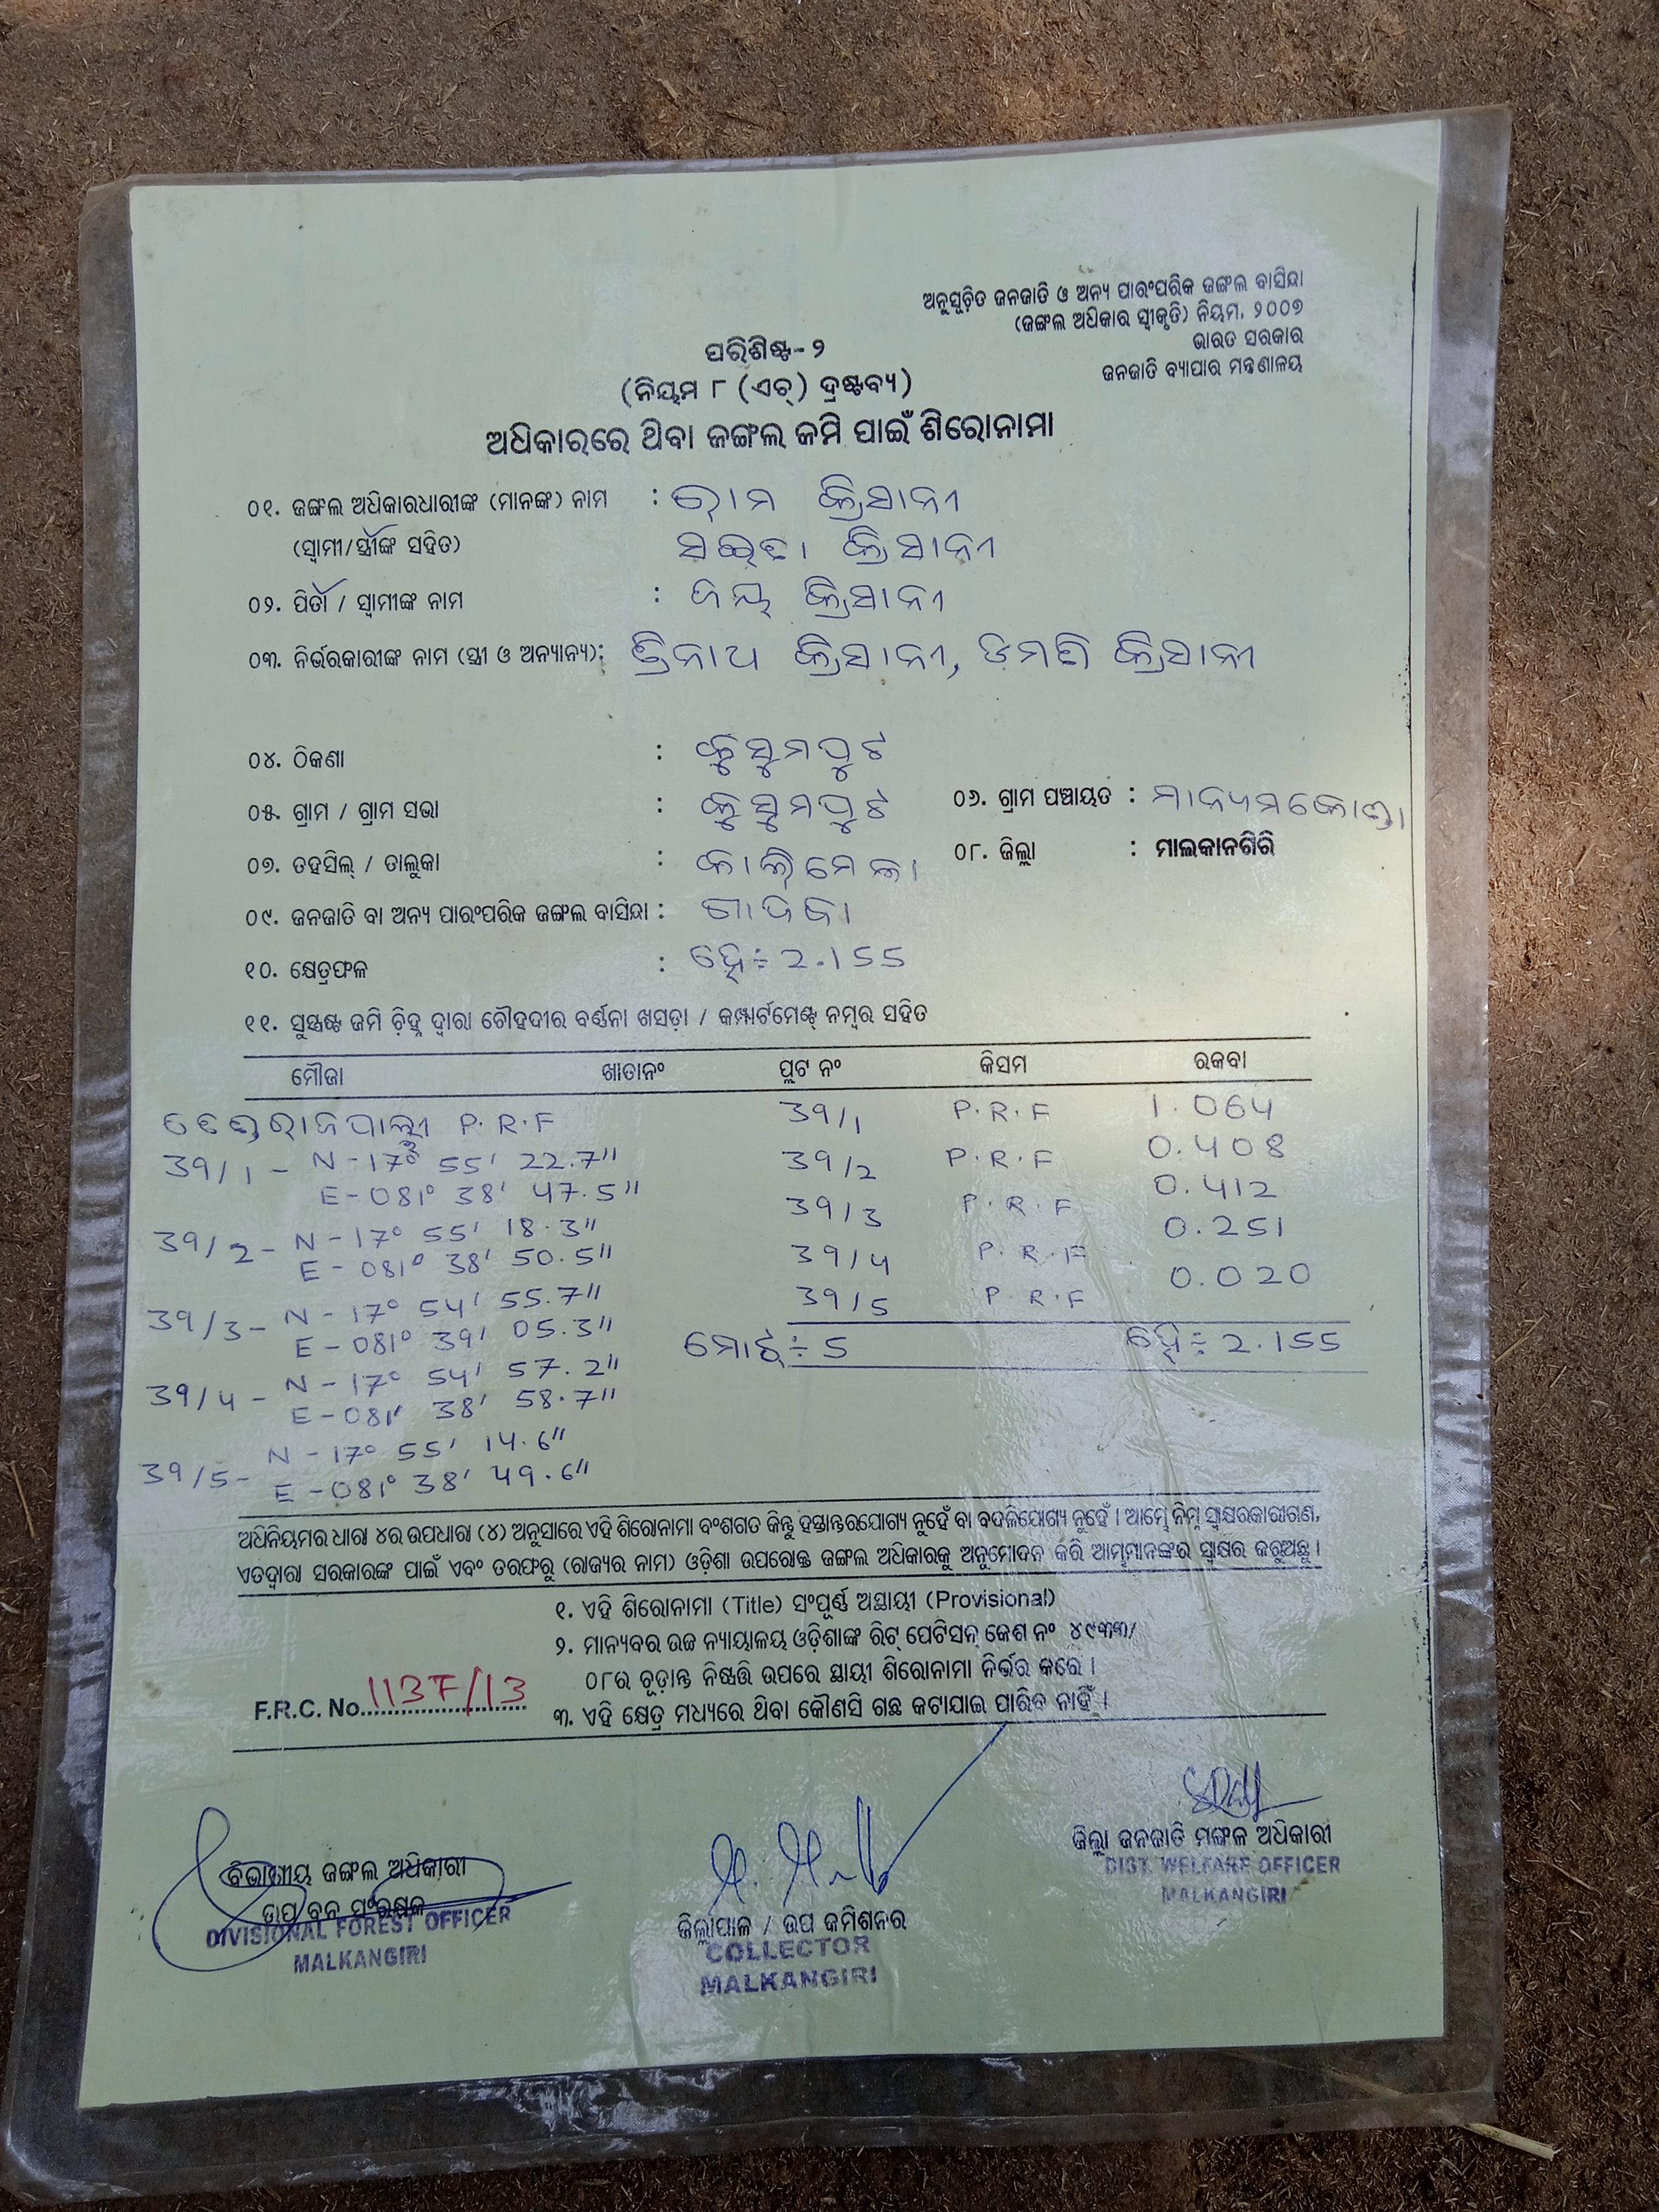 ଅନୁସୂଚିତ ଜନଜାତି ଓ ଅନ୍ୟ ପାରଂପରିକ ଜଙ୍ଗଲ ବାସିନ୍ଦା
(ଜଙ୍ଗଲ ଅଧିକାର ସ୍ୱୀକୃତି) ନିୟମ, ୨୦୦୭
ଭାରତ ସରକାର
ଜନଜାତି ବ୍ୟାପାର ମନ୍ତ୍ରଣାଳୟ
ପରିଶିଷ୍ଟ-୨
(ନିୟମ ୮ (ଏଚ୍) ଦ୍ରଷ୍ଟବ୍ୟ)
ଅଧିକାରରେ ଥିବା ଜଙ୍ଗଲ ଜମି ପାଇଁ ଶିରୋନାମା
୦୧. ଜଙ୍ଗଲ ଅଧିକାରଧାରୀଙ୍କ (ମାନଙ୍କ) ନାମ : ରାମ କ୍ରିସାନୀ
(ସ୍ୱାମୀ/ସ୍ତ୍ରୀଙ୍କ ସହିତ) କ୍ରିସାନୀ
୦୨. ପିତା / ସ୍ୱାମୀଙ୍କ ନାମ : ଜୟ କ୍ରିସାନୀ
୦୩. ନିର୍ଭରକାରୀଙ୍କ ନାମ (ସ୍ତ୍ରୀ ଓ ଅନ୍ୟାନ୍ୟ): ତ୍ରିନାଥ କ୍ରିସାନୀ, କ୍ରିସାନୀ
୦୪. ଠିକଣା : କୁସୁମପୁଟ
୦୫. ଗ୍ରାମ / ଗ୍ରାମ ସଭା : କୁସୁମପୁଟ ୦୬. ଗ୍ରାମ ପଞ୍ଚାୟତ : ମାନ୍ୟମକୋଣ୍ଡା
୦୭. ତହସିଲ୍ / ତାଲୁକା : କାଲିମେଳା ୦୮. ଜିଲ୍ଲା : ମାଲକାନଗିରି
୦୯. ଜନଜାତି ବା ଅନ୍ୟ ପାରଂପରିକ ଜଙ୍ଗଲ ବାସିନ୍ଦା : ଗାଦବା
୧୦. କ୍ଷେତ୍ରଫଳ : ହେ÷ 2.155
୧୧. ସୁସ୍ପଷ୍ଟ ଜମି ଚିହ୍ନ ଦ୍ୱାରା ଚୌହଦୀର ବର୍ଣ୍ଣନା ଖସଡ଼ା / କମ୍ପାର୍ଟମେଣ୍ଟ୍ ନମ୍ବର ସହିତ
ମୌଜା ଖାତାନଂ ପ୍ଲଟ ନଂ କିସମ ରକବା
P.R.F 39/1 P.R.F 1.064
39/1 - N - 17° 55' 22.7" 39/2 P.R.F 0.408
E - 081° 38' 47.5" 39/3 P.R.F 0.412
39/2 - N - 17° 55' 18.3" 39/4 P.R.F 0.251
E - 081° 38' 50.5" 39/5 P.R.F 0.020
39/3 - N - 17° 54' 55.7"
E - 081° 39' 05.3" ମୋଟ÷ 5 ହେ÷ 2.155
39/4 - N - 17° 54' 57.2"
E - 081' 38' 58.7"
39/5 - N - 17° 55' 14.6"
E - 081° 38' 49.6"
ଅଧିନିୟମର ଧାରା ୪ର ଉପଧାରା (୪) ଅନୁସାରେ ଏହି ଶିରୋନାମା ବଂଶଗତ କିନ୍ତୁ ହସ୍ତାନ୍ତରଯୋଗ୍ୟ ନୁହେଁ ବା ବଦଳିଯୋଗ୍ୟ ନୁହେଁ । ଆମ୍ଭେ ନିମ୍ନ ସ୍ୱାକ୍ଷରକାରୀଗଣ,
ଏତଦ୍ୱାରା ସରକାରଙ୍କ ପାଇଁ ଏବଂ ତରଫରୁ (ରାଜ୍ୟର ନାମ) ଓଡ଼ିଶା ଉପରୋକ୍ତ ଜଙ୍ଗଲ ଅଧିକାରକୁ ଅନୁମୋଦନ କରି ଆମ୍ଭମାନଙ୍କର ସ୍ୱାକ୍ଷର କରୁଅଛୁ ।
୧. ଏହି ଶିରୋନାମା (Title) ସଂପୂର୍ଣ୍ଣ ଅସ୍ଥାୟୀ (Provisional)
୨. ମାନ୍ୟବର ଉଚ୍ଚ ନ୍ୟାୟାଳୟ ଓଡ଼ିଶାଙ୍କ ରିଟ୍ ପେଟିସନ୍ କେଶ ନଂ ୪୯୩୩/
୦୮ର ଚୂଡ଼ାନ୍ତ ନିଷ୍ପତ୍ତି ଉପରେ ସ୍ଥାୟୀ ଶିରୋନାମା ନିର୍ଭର କରେ ।
F.R.C. No. 1137/13 ୩. ଏହି କ୍ଷେତ୍ର ମଧ୍ୟରେ ଥିବା କୌଣସି ଗଛ କଟାଯାଇ ପାରିବ ନାହିଁ ।
ବିଭାଗୀୟ ଜଙ୍ଗଲ ଅଧିକାରୀ
ଉପ ବନ ସଂରକ୍ଷକ
DIVISIONAL FOREST OFFICER
MALKANGIRI
ଜିଲ୍ଲାପାଳ / ଉପ କମିଶନର
COLLECTOR
MALKANGIRI
ଜିଲ୍ଲା ଜନଜାତି ମଙ୍ଗଳ ଅଧିକାରୀ
DIST. WELFARE OFFICER
MALKANGIRI